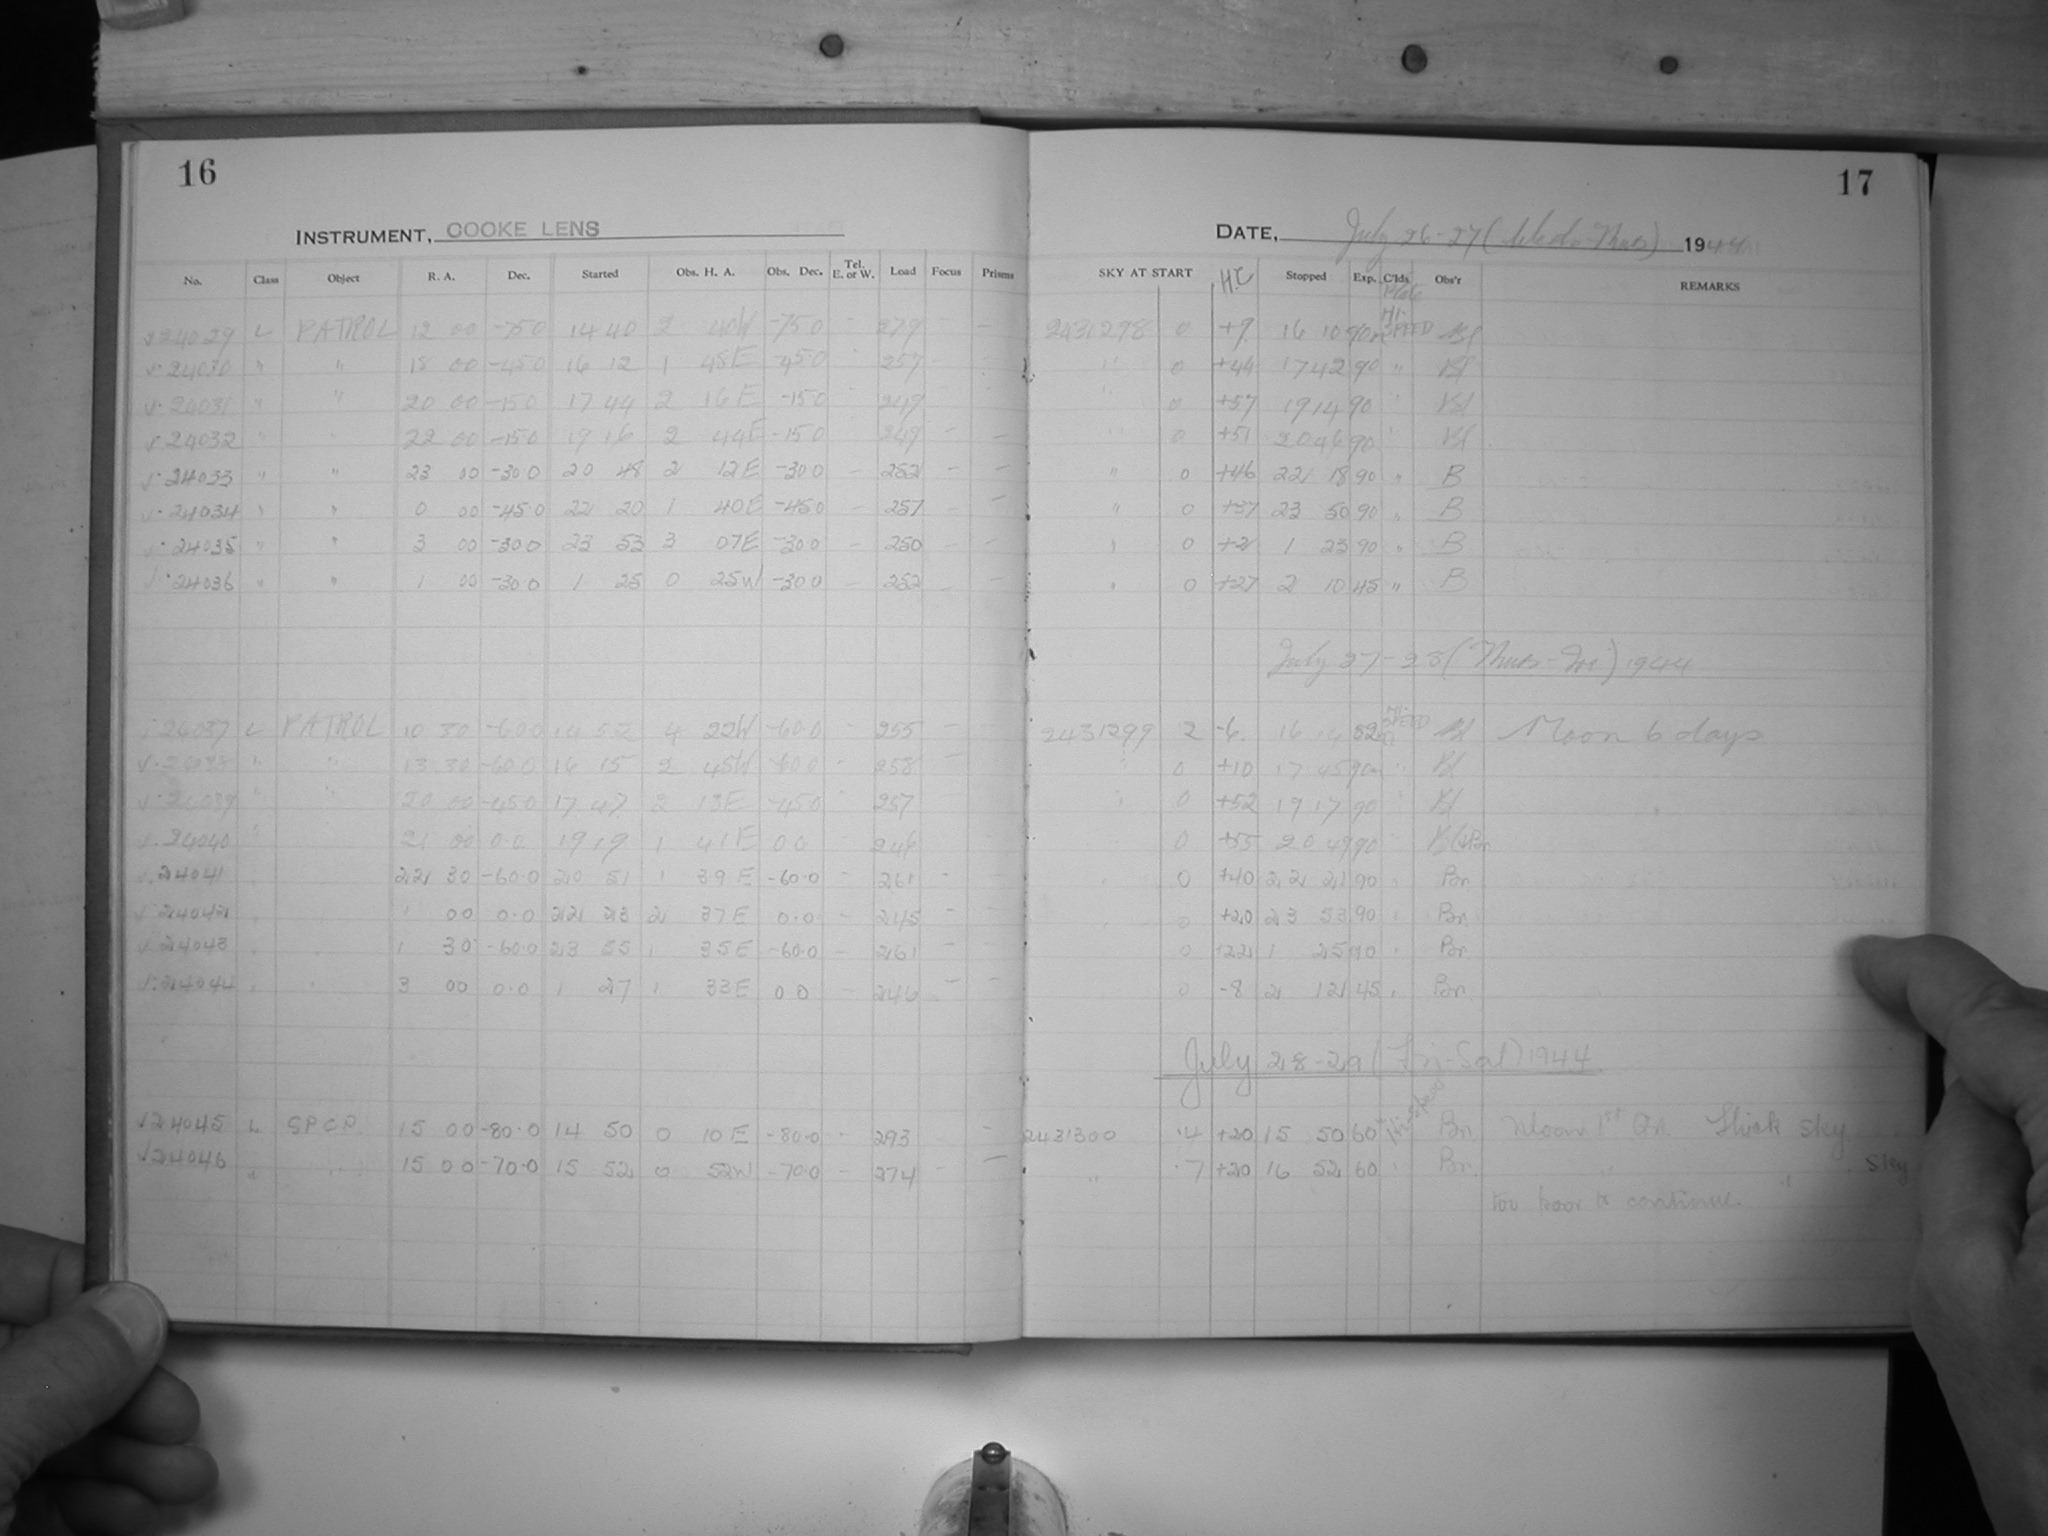 16
17
INSTRUMENT, COOKE LENS
DATE, July 26-27 (Weds-Thurs) 1944
No. Class Object R. A. Dec. Started Obs. H. A. Obs. Dec. Tel. E. or W. Load Focus Prisms SKY AT START H.C Stopped Exp. C'lds Plate Obs'r REMARKS
24029 L PATROL 12 00 -75 0 14 40 2 40W -75 0 - 279 - - 2431298 0 +9 16 10 90m HI-SPEED Bl
24030 " " 18 00 -45 0 16 12 1 48E -45 0 257 - " 0 +44 17 42 90 " Bl
24031 " " 20 00 -15 0 17 44 2 16E -15 0 249 " 0 +57 19 14 90 " Bl
24032 " " 22 00 -15 0 19 16 2 44E -15 0 249 - - " 0 +51 20 46 90 " Bl
24033 " " 23 00 -30 0 20 48 2 12E -30 0 - 252 - - " 0 +46 22 18 90 " B
24034 " " 0 00 -45.0 22 20 1 40E -45.0 - 257 - - " 0 +37 23 50 90 " B
24035 " " 3 00 -30 0 23 53 3 07E -30.0 - 250 - - " 0 +2 1 23 90 " B
24036 " " 1 00 -30.0 1 25 0 25W -30 0 - 252 - - " 0 +27 2 10 45 " B
July 27-28 (Thurs-Fri) 1944
24037 L PATROL 10 30 -60 0 14 52 4 22W -60.0 - 255 - 2431299 2 -6 16 14 52m HI-SPEED Bl Moon 6 days
24038 " " 13 30 -60 0 16 15 2 45W -60 0 - 258 - " 0 +10 17 45 90m " Bl
24039 " " 20 00 -45 0 17 47 2 13E -45 0 257 " 0 +52 19 17 90 " Bl
24040 " 21 00 0.0 19 19 1 41E 0 0 - 246 0 +55 20 49 90 Bl&Bn
24041 22 30 -60.0 20 51 1 39E -60.0 - 261 - - 0 +40 22 21 90 " Bn
24042 1 00 0.0 22 23 2 37E 0.0 - 245 - - 0 +20 23 53 90 " Bn
24043 1 30 -60.0 23 55 1 35E -60.0 - 261 - - 0 +22 1 25 90 " Bn
24044 3 00 0.0 1 27 1 33E 0 0 - 246 - - 0 -8 2 12 45 " Bn
July 28-29 (Fri-Sat) 1944
24045 L SPCP 15 00 -80.0 14 50 0 10E -80.0 - 293 - 2431300 .4 +20 15 50 60 Hi-Speed Bn Moon 1st Qr. Thick sky
24046 " " 15 00 -70.0 15 52 0 52W -70.0 - 274 - - " .7 +20 16 52 60 " Bn " " sky
too poor to continue.